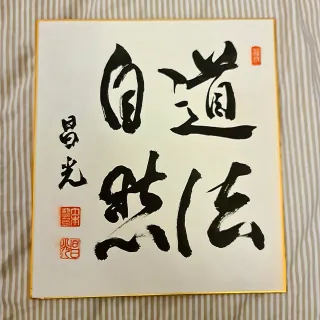 道法
自然
昌光